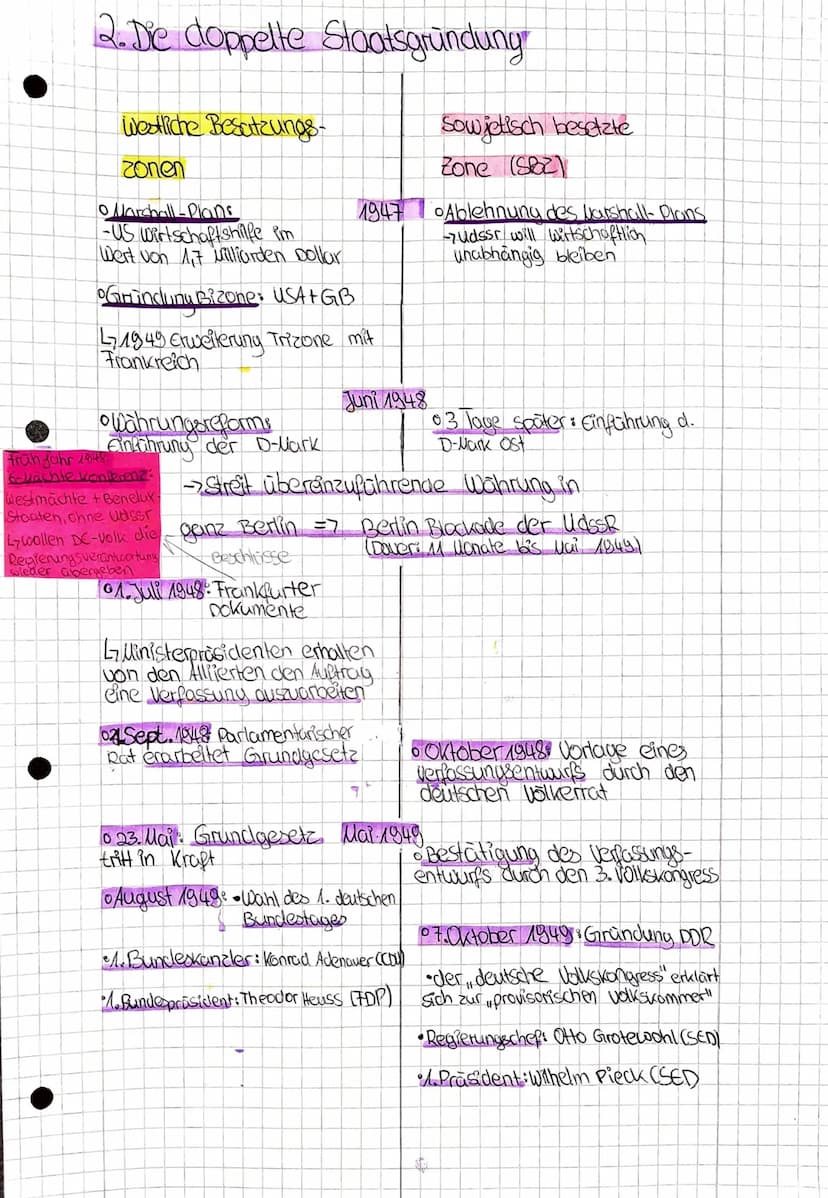 2. Die doppelte Staatsgründung
Westliche Besatzungs-
zonen
Sowjetisch besetzte
Zone (SBZ)
1947
o Marshall-Plan:
-US Wirtschaftshilfe im
Wert von 1,7 Milliarden Dollar
o Gründung Bizone: USA+GB
↳ 1949 Erweiterung Trizone mit
Frankreich
o Ablehnung des Marshall-Plans
→ UdSSR will wirtschaftlich
unabhängig bleiben
Juni 1948
o Währungsreform:
Einführung der D-Mark
o 3 Tage später: Einführung d.
D-Mark Ost
→ Streit über einzuführende Währung in
ganz Berlin => Berlin Blockade der UdSSR
(Dauer: 11 Monate bis Mai 1949)
Frühjahr 1948:
Konferenz:
Westmächte + Benelux-
Staaten, ohne UdSSR
↳ wollen DE-Volk die
Regierungsverantwortung
wieder übergeben
Beschlüsse
o 1. Juli 1948: Frankfurter
Dokumente
↳ Ministerpräsidenten erhalten
von den Alliierten den Auftrag
eine Verfassung auszuarbeiten
o 1. Sept. 1948: Parlamentarischer
Rat erarbeitet Grundgesetz
o Oktober 1948: Vorlage eines
Verfassungsentwurfs durch den
deutschen Volkerrat
Mai 1949
o 23. Mai: Grundgesetz
tritt in Kraft
o Bestätigung des Verfassungs-
entwurfs durch den 3. Volkskongress
o August 1949: • Wahl des 1. deutschen
Bundestages
• 1. Bundeskanzler: Konrad Adenauer (CDU)
• 1. Bundespräsident: Theodor Heuss (FDP)
o 7. Oktober 1949: Gründung DDR
• der „deutsche Volkskongress" erklärt
sich zur „provisorischen Volkskammer"
• Regierungschef: Otto Grotewohl (SED)
• 1. Präsident: Wilhelm Pieck (SED